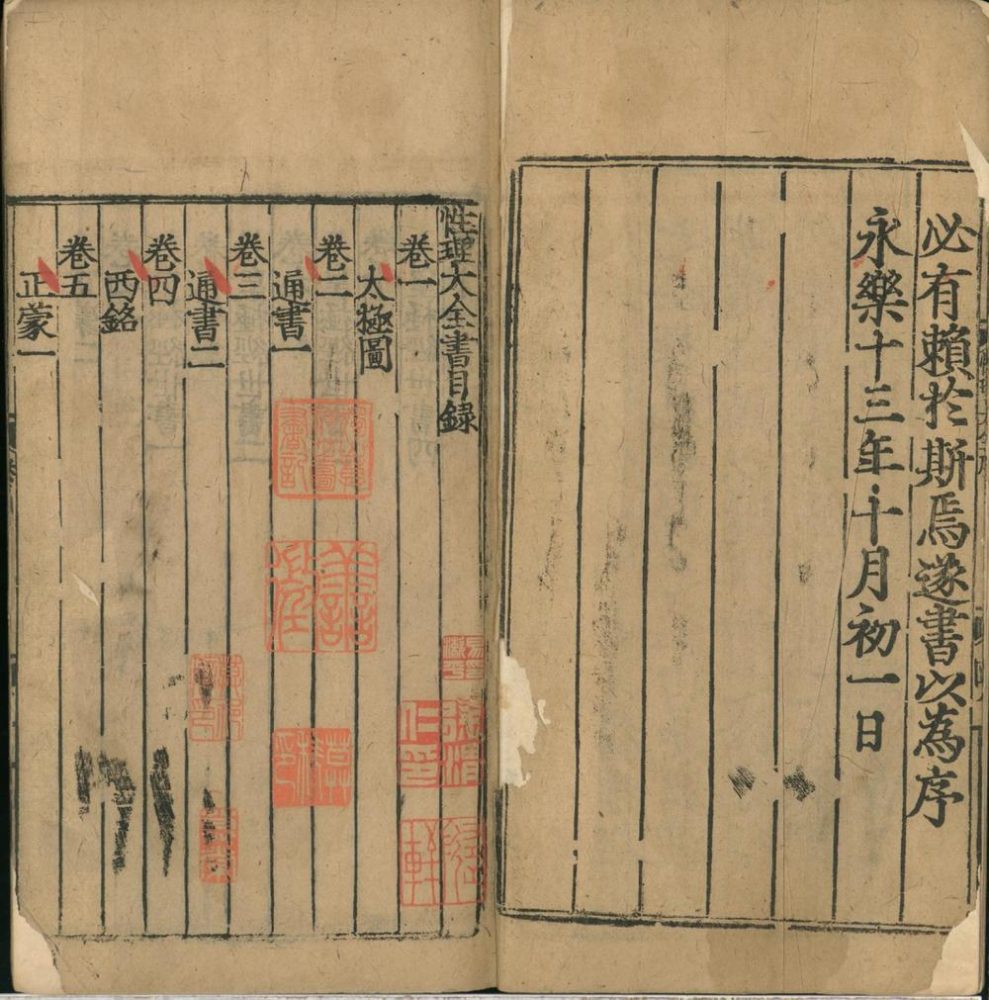 必有賴於斯焉遂書以為序
永樂十三年十月初一日
性理大全書目録
卷一
太極圖
卷二
通書一
卷三
通書二
卷四
西銘
卷五
正蒙一